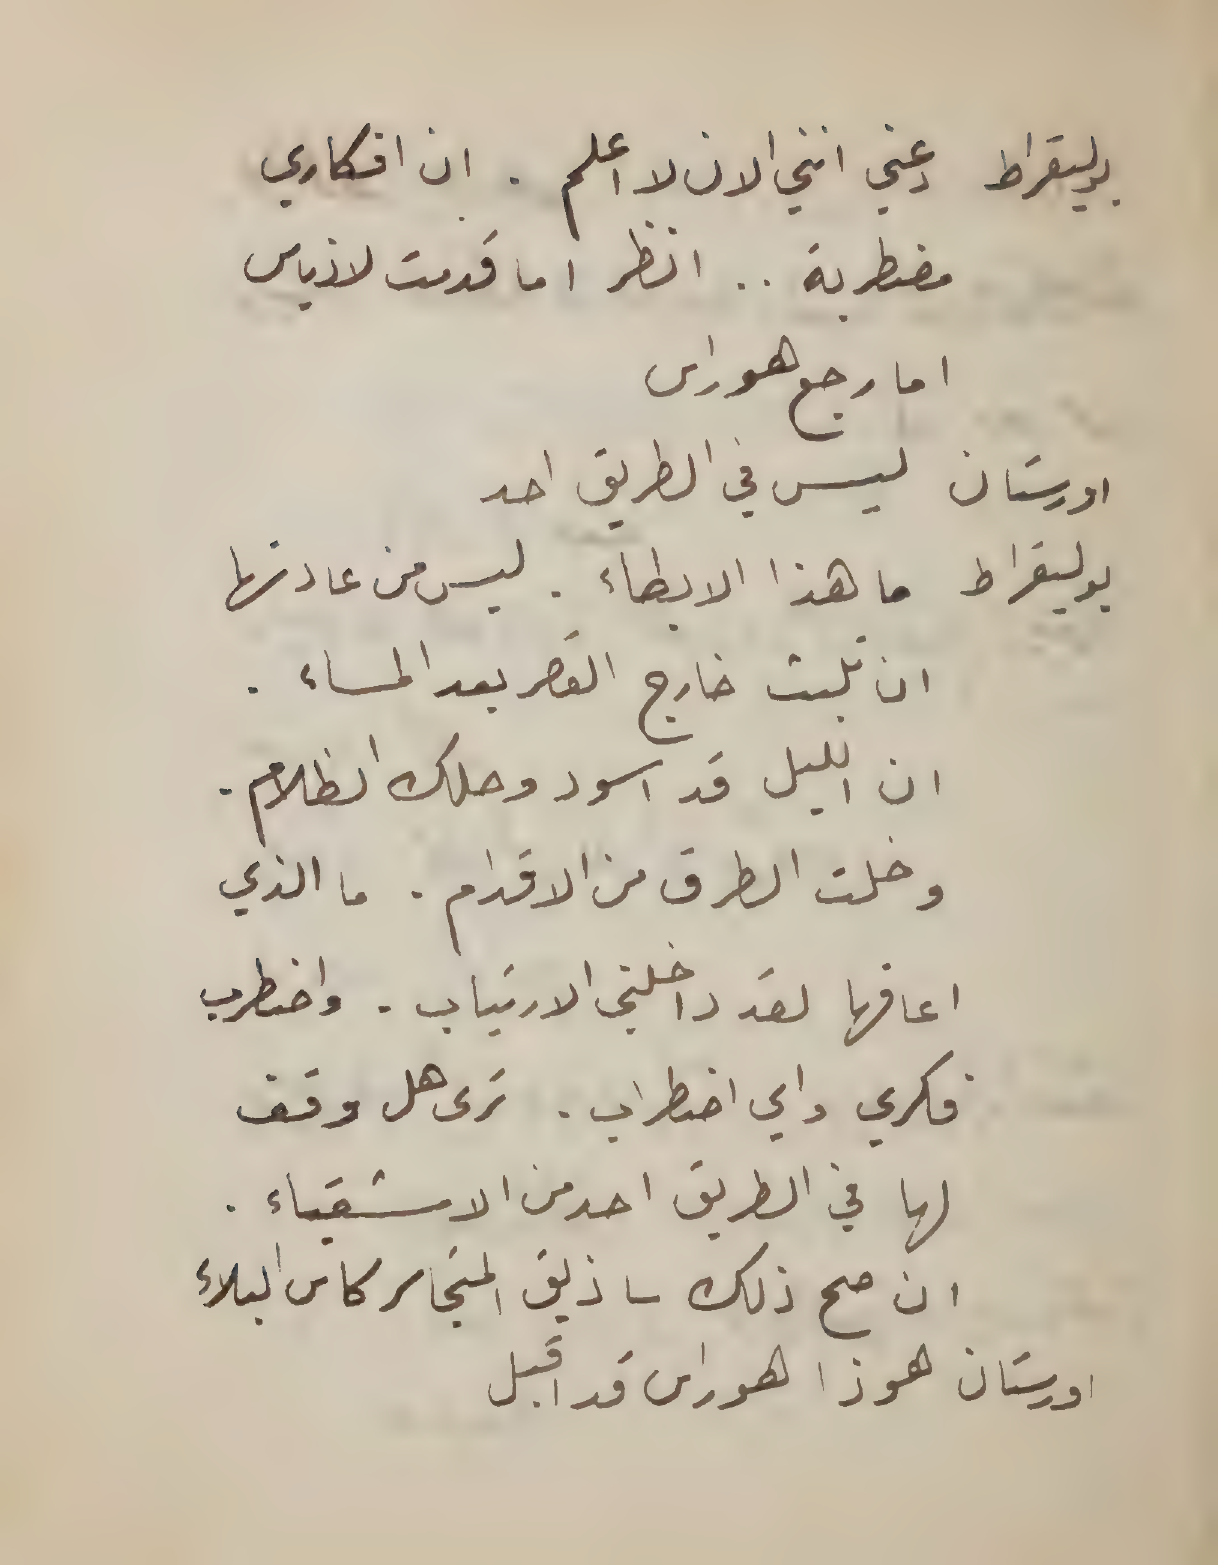 بوليقراط دعني انني الان لا اعلم . ان افكاري
مضطربة .. انظر اما قدمت لاذياس
اما رجع هوراس
اورستان ليس في الطريق احد
بوليقراط ما هذا الابطاء . ليس من عادتها
ان تلبث خارج القصر بعد المساء .
ان الليل قد اسود وحلك الظلام .
وخلت الطرق من الاقدام . ما الذي
اعاقها لقد داخلني الارتياب . واضطرب
فكري واي اضطراب . ترى هل وقف
لها في الطريق احد من الاشقياء .
ان صح ذلك ساذيق المتجاسر كاس البلاء
اورستان هوذا هوراس قد اقبل